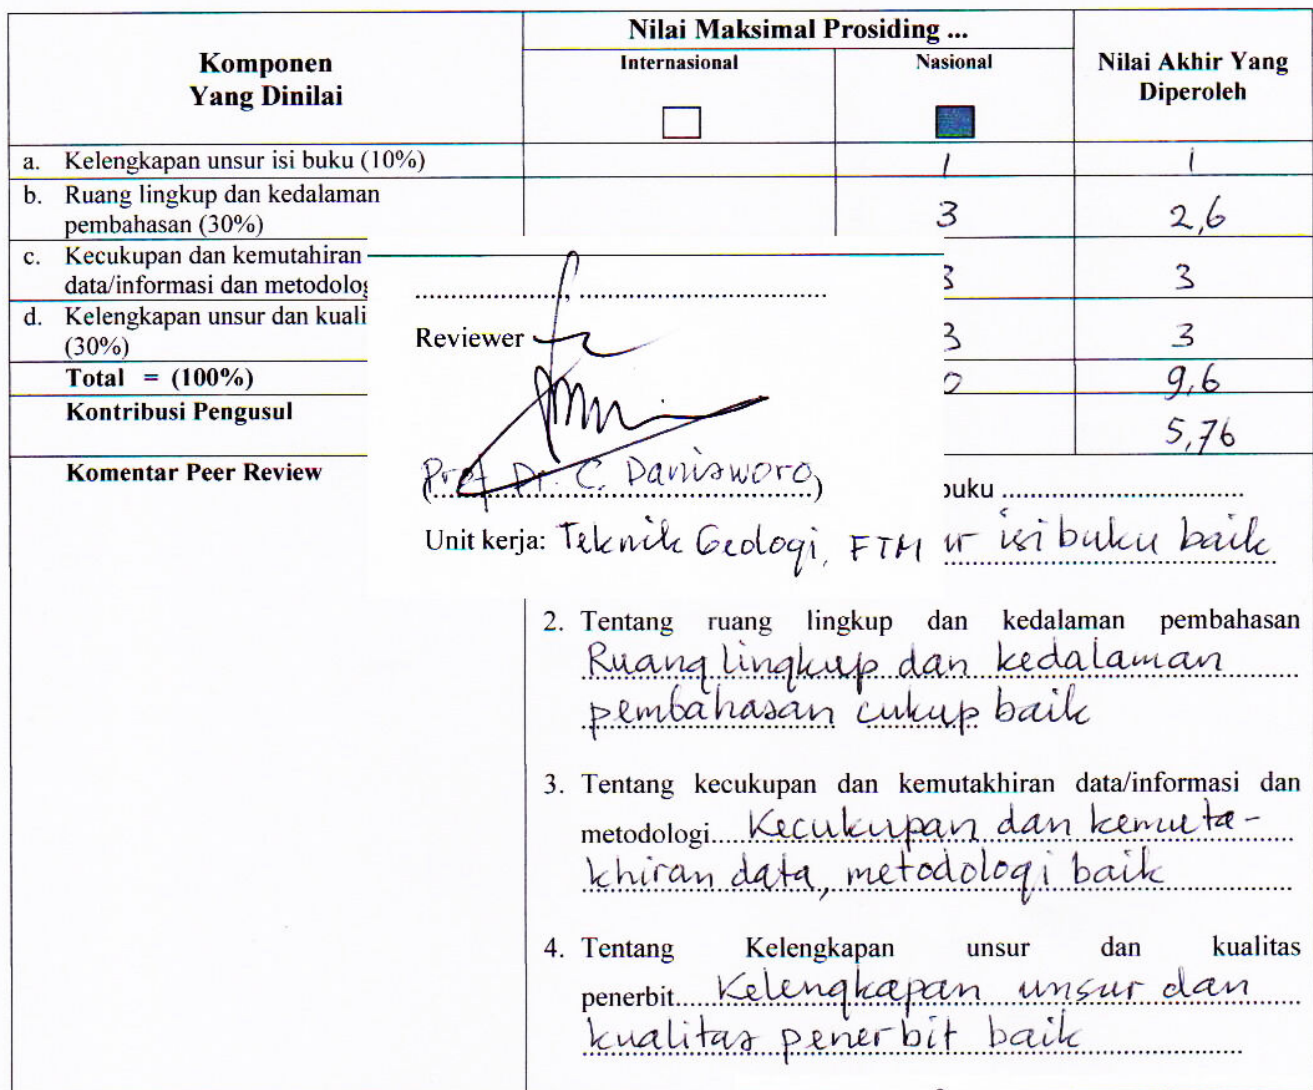 Komponen
Yang Dinilai
Nilai Maksimal Prosiding ...
Internasional
Nasional
Nilai Akhir Yang
Diperoleh
a. Kelengkapan unsur isi buku (10%) 1 1
b. Ruang lingkup dan kedalaman
pembahasan (30%) 3 2,6
c. Kecukupan dan kemutahiran
data/informasi dan 3 3
d. Kelengkapan unsur dan
(30%) 3 3
Total = (100%) 9,6
Kontribusi Pengusul 5,76
Komentar Peer Review
....................., ...................................
Reviewer
(Prof Dr. C. Danisworo)
Unit kerja: Teknik Geologi, FTM
buku ...................................
isi buku baik
2. Tentang ruang lingkup dan kedalaman pembahasan
Ruang lingkup dan kedalaman
pembahasan cukup baik
3. Tentang kecukupan dan kemutakhiran data/informasi dan
metodologi.... Kecukupan dan kemuta-
khiran data, metodologi baik
4. Tentang Kelengkapan unsur dan kualitas
penerbit.... Kelengkapan unsur dan
kualitas penerbit baik